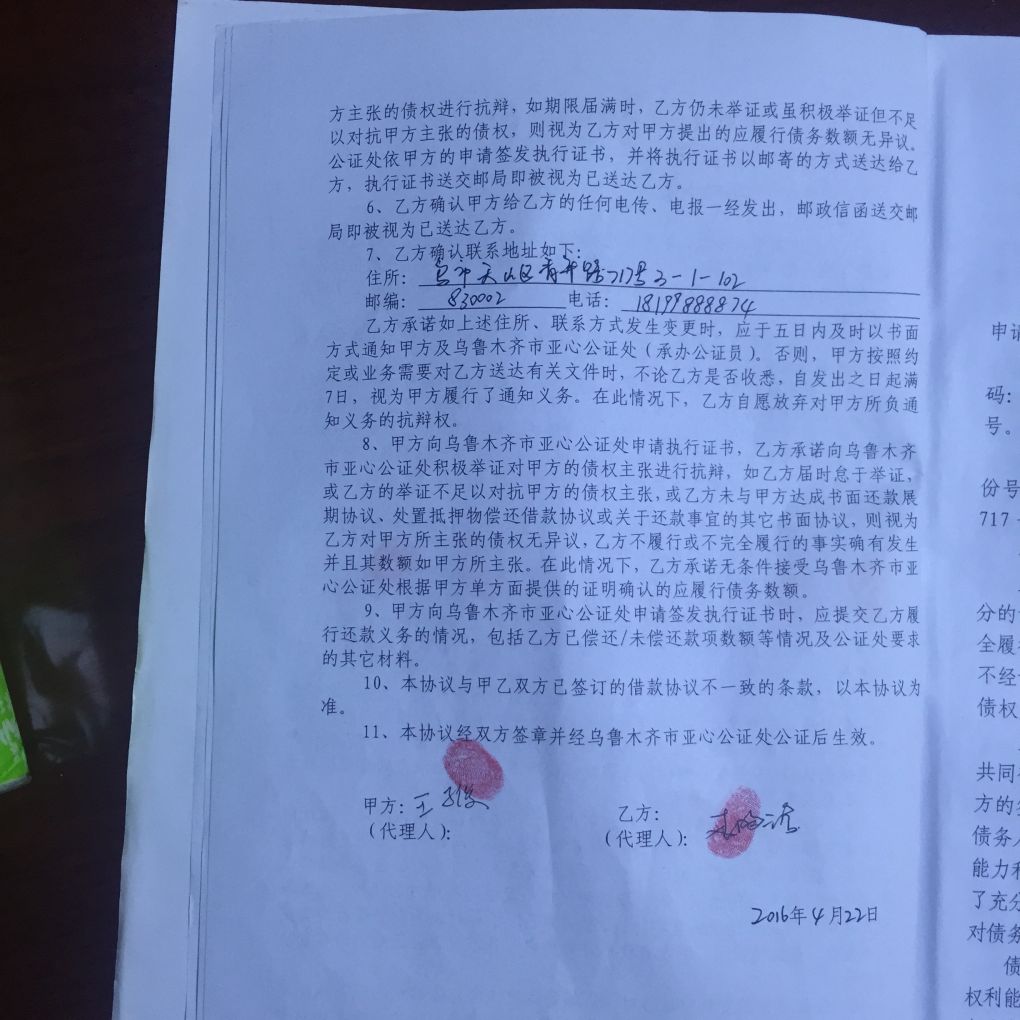 方主张的债权进行抗辩，如期限届满时，乙方仍未举证或虽积极举证但不足
以对抗甲方主张的债权，则视为乙方对甲方提出的应履行债务数额无异议。
公证处依甲方的申请签发执行证书，并将执行证书以邮寄的方式送达给乙
方，执行证书送交邮局即被视为已送达乙方。
6、乙方确认甲方给乙方的任何电传、电报一经发出，邮政信函送交邮
局即被视为已送达乙方。
7、乙方确认联系地址如下：
住所：乌市天山区青年路717号2-1-102
邮编：830002 电话：18199888874
乙方承诺如上述住所、联系方式发生变更时，应于五日内及时以书面
方式通知甲方及乌鲁木齐市亚心公证处（承办公证员）。否则，甲方按照约
定或业务需要对乙方送达有关文件时，不论乙方是否收悉，自发出之日起满
7日，视为甲方履行了通知义务。在此情况下，乙方自愿放弃对甲方所负通
知义务的抗辩权。
8、甲方向乌鲁木齐市亚心公证处申请执行证书，乙方承诺向乌鲁木齐
市亚心公证处积极举证对甲方的债权主张进行抗辩，如乙方届时怠于举证，
或乙方的举证不足以对抗甲方的债权主张，或乙方未与甲方达成书面还款展
期协议、处置抵押物偿还借款协议或关于还款事宜的其它书面协议，则视为
乙方对甲方所主张的债权无异议，乙方不履行或不完全履行的事实确有发生
并且其数额如甲方所主张。在此情况下，乙方承诺无条件接受乌鲁木齐市亚
心公证处根据甲方单方面提供的证明确认的应履行债务数额。
9、甲方向乌鲁木齐市亚心公证处申请签发执行证书时，应提交乙方履
行还款义务的情况，包括乙方已偿还/未偿还款项数额等情况及公证处要求
的其它材料。
10、本协议与甲乙双方已签订的借款协议不一致的条款，以本协议为
准。
11、本协议经双方签章并经乌鲁木齐市亚心公证处公证后生效。
甲方：王
（代理人）：
乙方：
（代理人）：
2016年4月22日
申请
码：
号。
份号
717
分的
全履
不经
债权
共同
方的
债务
能力
了充分
对债务
债
权利能